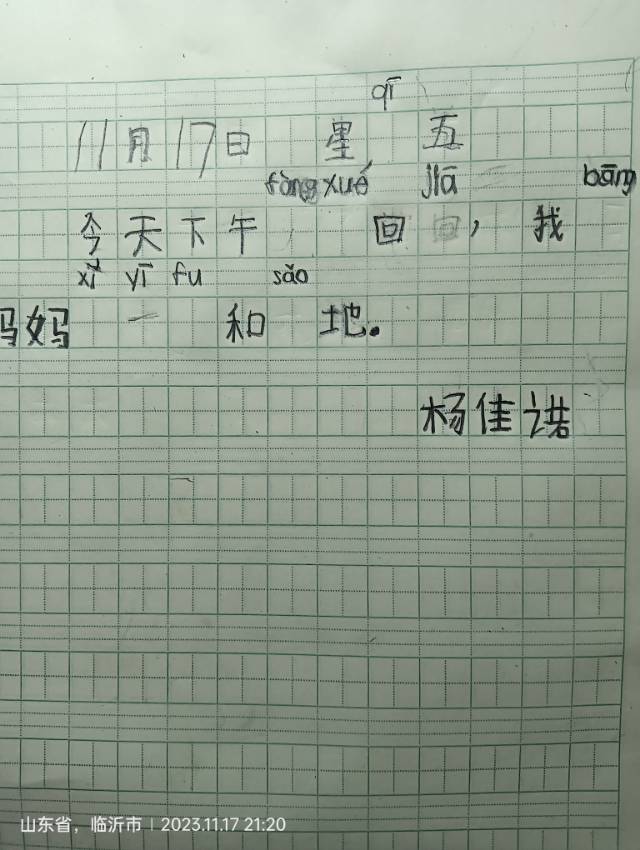 qī
11月17日 星 五
fàng xué jiā bāng
今天下午 回回， 我
xǐ yī fu sǎo
妈妈 和 地。
杨佳诺
山东省，临沂市 | 2023.11.17 21:20